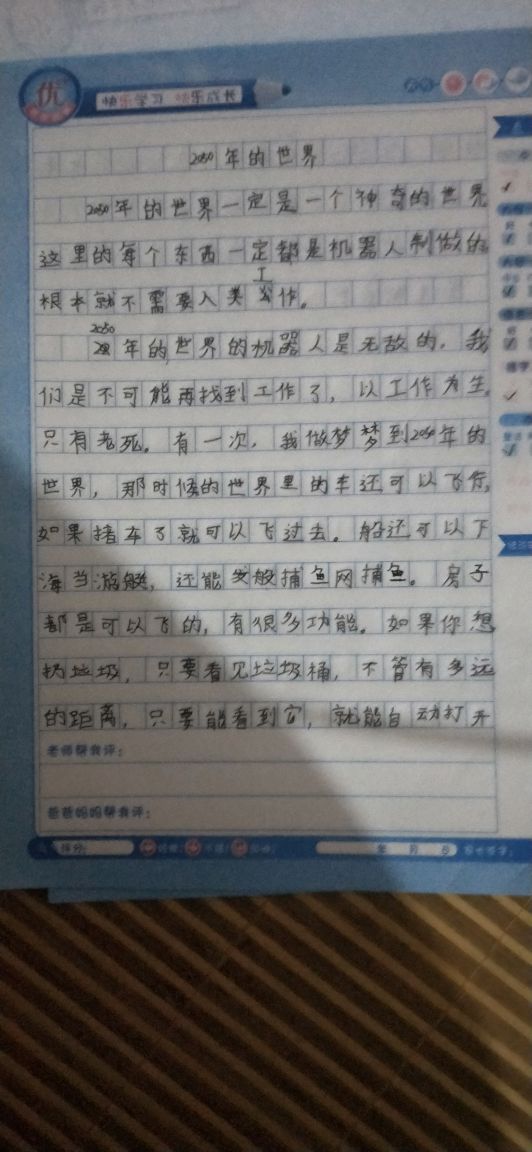 优
快乐学习 快乐成长
2050年的世界
2050年的世界一定是一个神奇的世界
这里的每个东西一定都是机器人制做的
根本就不需要人类工作。
2050年的世界的机器人是无敌的，我
们是不可能再找到工作了，以工作为生
只有老死。有一次，我做梦梦到2050年的
世界，那时候的世界里的车还可以飞行，
如果堵车了就可以飞过去。船还可以下
海当游艇，还能发般捕鱼网捕鱼。房子
都是可以飞的，有很多功能。如果你想
扔垃圾，只要看见垃圾桶，不管有多远
的距离，只要能看到它，就能自动打开
老师帮我评：
爸爸妈妈帮我评：
年 月 日